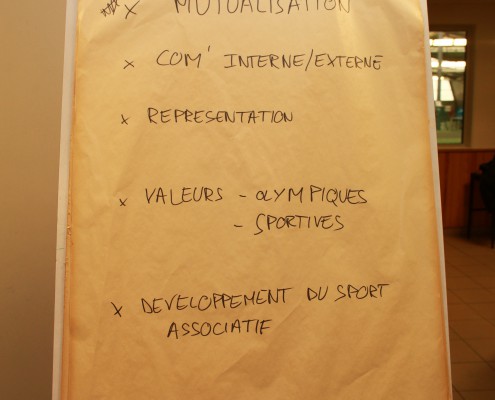 x MUTUALISATION
x COM' INTERNE/EXTERNE
x REPRESENTATION
x VALEURS - OLYMPIQUES
- SPORTIVES
x DEVELOPPEMENT DU SPORT
ASSOCIATIF